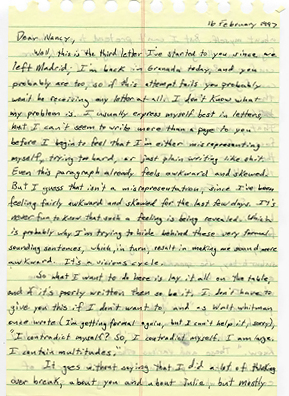 16 February 1997
Dear Nancy,
Well, this is the third letter I've started to you since we
left Madrid; I'm back in Granada today, and you
probably are too, so if this attempt fails you probably
won't be receiving my letter at all. I don't know what
my problem is. I usually express myself best in letters,
but I can't seem to write more than a page to you
before I begin to feel that I'm either misrepresenting
myself, trying too hard, or just plain writing like shit.
Even this paragraph already feels awkward and skewed.
But I guess that isn't a misrepresentation, since I've been
feeling fairly awkward and skewed for the last few days. It's
never fun to know that such a feeling is being revealed. Which
is probably why I'm trying to hide behind these very formal-
sounding sentences, which, in turn, result in making me sound more
awkward. It's a vicious cycle.
So what I want to do here is lay it all on the table,
and if it's poorly written then so be it. I don't have to
give you this if I don't want to, and as Walt Whitman
once wrote (I'm getting formal again, but I can't help it, sorry),
"I contradict myself? So, I contradict myself. I am large.
I contain multitudes."
It goes without saying that I did a lot of thinking
over break, about you and about Julie, but mostly